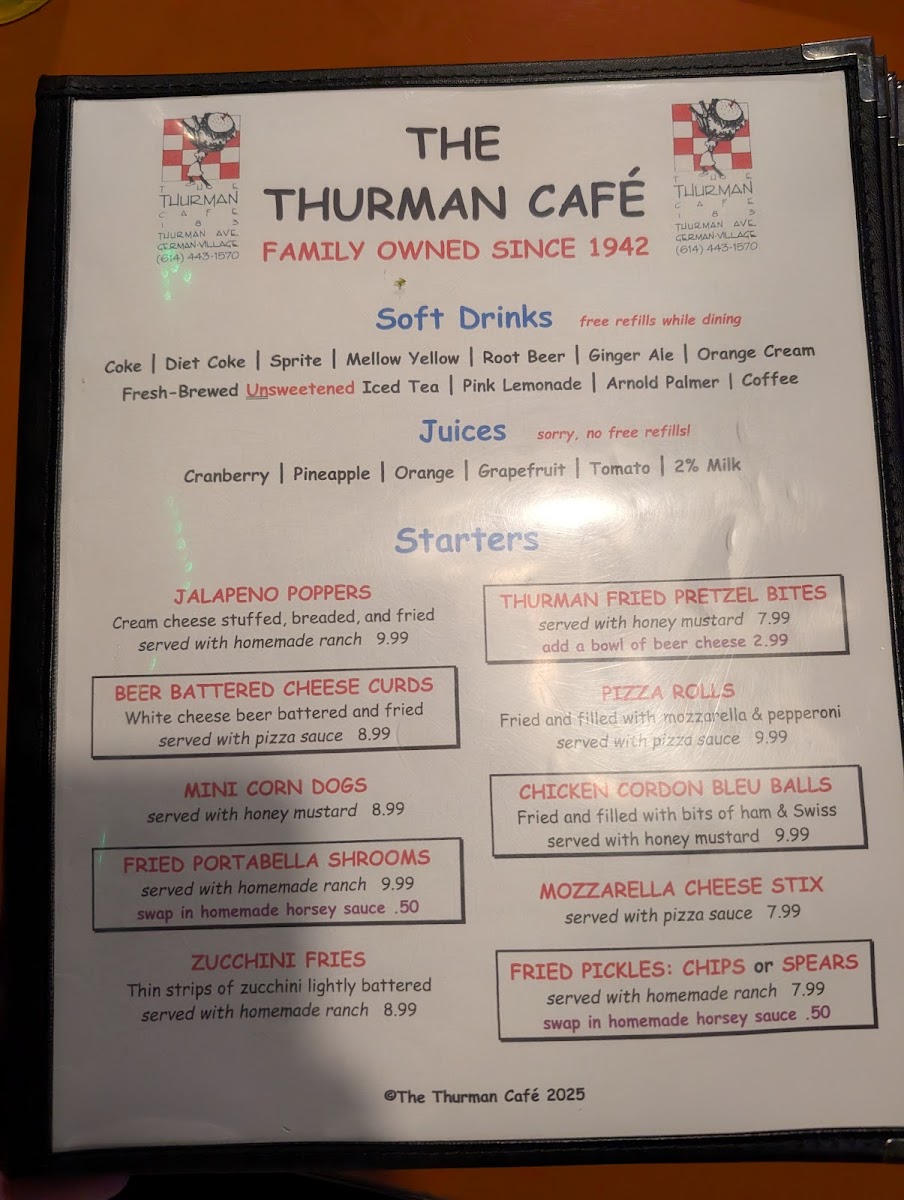 THE
THURMAN CAFÉ
FAMILY OWNED SINCE 1942
THE
THURMAN
CAFE
183
THURMAN AVE.
GERMAN VILLAGE
(614) 443-1570
THE
THURMAN
CAFE
183
THURMAN AVE.
GERMAN VILLAGE
(614) 443-1570
Soft Drinks free refills while dining
Coke | Diet Coke | Sprite | Mellow Yellow | Root Beer | Ginger Ale | Orange Cream
Fresh-Brewed Unsweetened Iced Tea | Pink Lemonade | Arnold Palmer | Coffee
Juices sorry, no free refills!
Cranberry | Pineapple | Orange | Grapefruit | Tomato | 2% Milk
Starters
JALAPENO POPPERS
Cream cheese stuffed, breaded, and fried
served with homemade ranch 9.99
BEER BATTERED CHEESE CURDS
White cheese beer battered and fried
served with pizza sauce 8.99
MINI CORN DOGS
served with honey mustard 8.99
FRIED PORTABELLA SHROOMS
served with homemade ranch 9.99
swap in homemade horsey sauce .50
ZUCCHINI FRIES
Thin strips of zucchini lightly battered
served with homemade ranch 8.99
THURMAN FRIED PRETZEL BITES
served with honey mustard 7.99
add a bowl of beer cheese 2.99
PIZZA ROLLS
Fried and filled with mozzarella & pepperoni
served with pizza sauce 9.99
CHICKEN CORDON BLEU BALLS
Fried and filled with bits of ham & Swiss
served with honey mustard 9.99
MOZZARELLA CHEESE STIX
served with pizza sauce 7.99
FRIED PICKLES: CHIPS or SPEARS
served with homemade ranch 7.99
swap in homemade horsey sauce .50
©The Thurman Café 2025